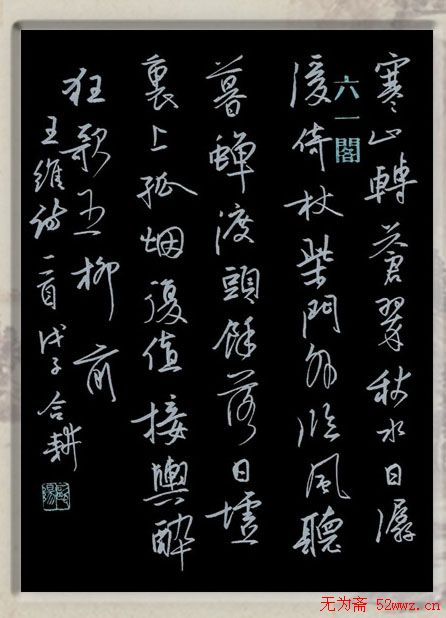 寒山轉蒼翠秋水日潺
六一閣
湲倚杖柴門外臨風聽
暮蟬渡頭餘落日墟
裏上孤烟復值接輿醉
狂歌五柳前
王維詩一首戊子合耕
无为斋 52wwz.cn